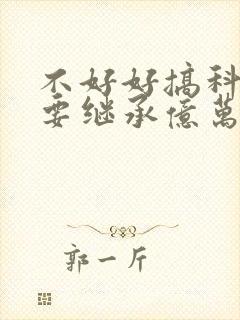 不好好搞科
要继承億萬
郭一斤